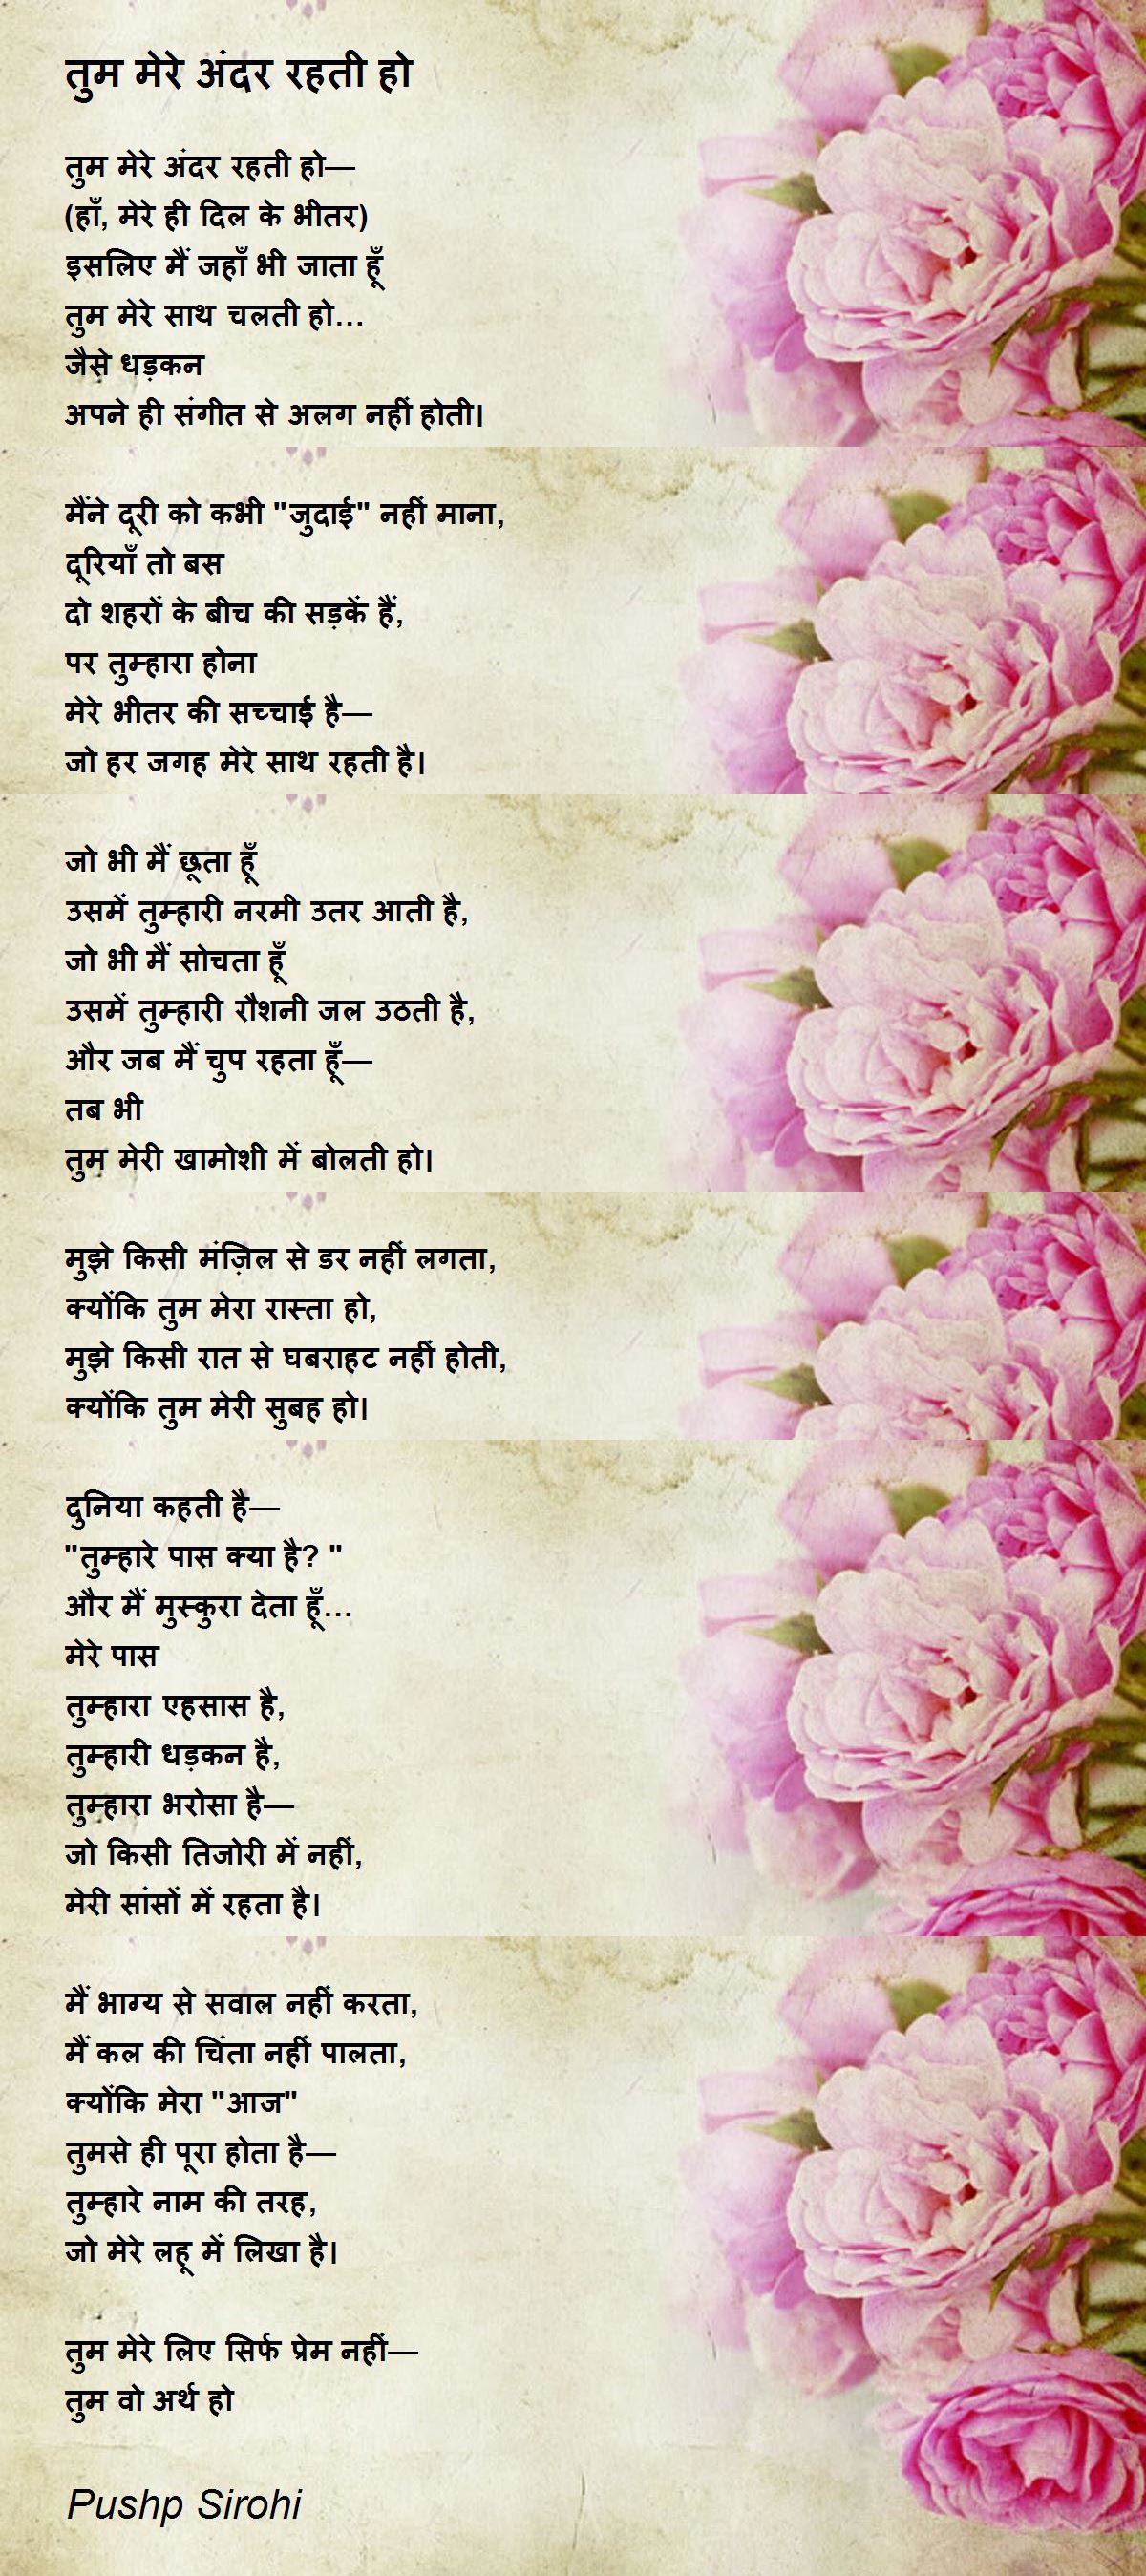 तुम मेरे अंदर रहती हो
तुम मेरे अंदर रहती हो—
(हाँ, मेरे ही दिल के भीतर)
इसलिए मैं जहाँ भी जाता हूँ
तुम मेरे साथ चलती हो...
जैसे धड़कन
अपने ही संगीत से अलग नहीं होती।
मैंने दूरी को कभी "जुदाई" नहीं माना,
दूरियाँ तो बस
दो शहरों के बीच की सड़कें हैं,
पर तुम्हारा होना
मेरे भीतर की सच्चाई है—
जो हर जगह मेरे साथ रहती है।
जो भी मैं छूता हूँ
उसमें तुम्हारी नरमी उतर आती है,
जो भी मैं सोचता हूँ
उसमें तुम्हारी रौशनी जल उठती है,
और जब मैं चुप रहता हूँ—
तब भी
तुम मेरी खामोशी में बोलती हो।
मुझे किसी मंज़िल से डर नहीं लगता,
क्योंकि तुम मेरा रास्ता हो,
मुझे किसी रात से घबराहट नहीं होती,
क्योंकि तुम मेरी सुबह हो।
दुनिया कहती है—
"तुम्हारे पास क्या है? "
और मैं मुस्कुरा देता हूँ...
मेरे पास
तुम्हारा एहसास है,
तुम्हारी धड़कन है,
तुम्हारा भरोसा है—
जो किसी तिजोरी में नहीं,
मेरी सांसों में रहता है।
मैं भाग्य से सवाल नहीं करता,
मैं कल की चिंता नहीं पालता,
क्योंकि मेरा "आज"
तुमसे ही पूरा होता है—
तुम्हारे नाम की तरह,
जो मेरे लहू में लिखा है।
तुम मेरे लिए सिर्फ प्रेम नहीं—
तुम वो अर्थ हो
Pushp Sirohi